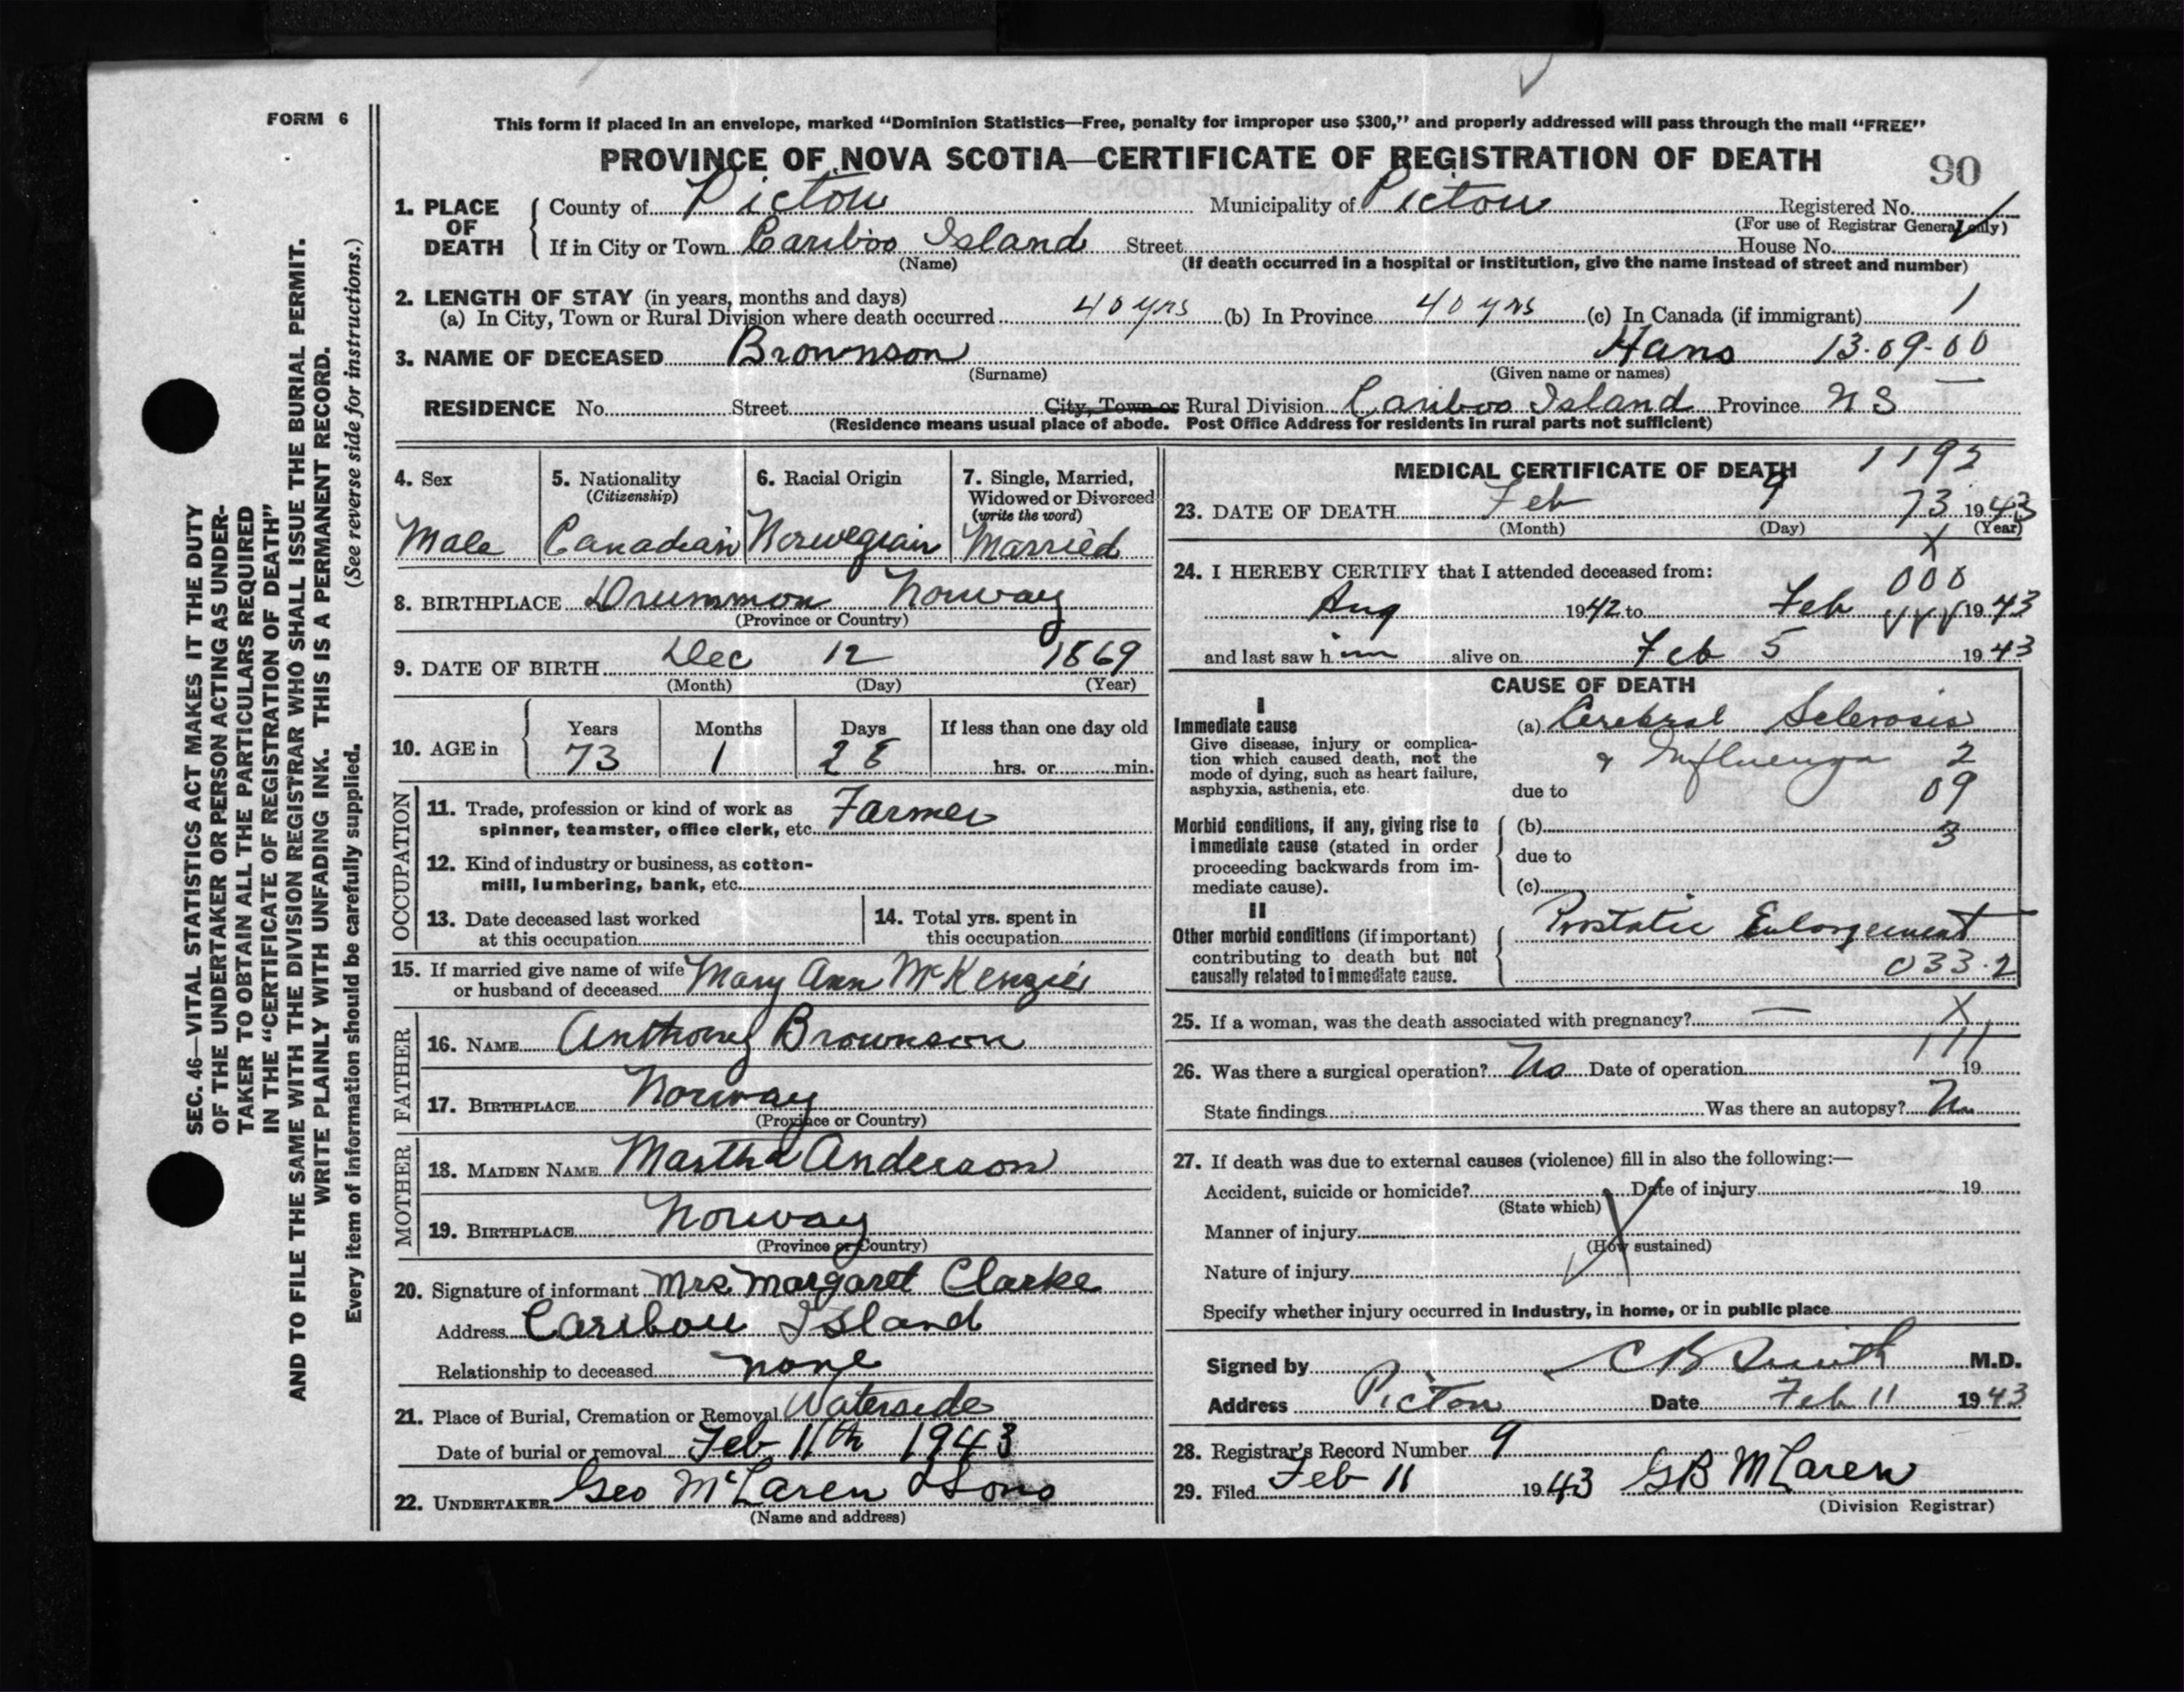 FORM 6
This form if placed in an envelope, marked "Dominion Statistics—Free, penalty for improper use $300," and properly addressed will pass through the mail "FREE"
PROVINCE OF NOVA SCOTIA—CERTIFICATE OF REGISTRATION OF DEATH 90
1. PLACE OF DEATH
County of Pictou Municipality of Pictou Registered No.
(For use of Registrar General only)
If in City or Town Cariboo Island Street House No.
(Name) (If death occurred in a hospital or institution, give the name instead of street and number)
2. LENGTH OF STAY (in years, months and days)
(a) In City, Town or Rural Division where death occurred 40 yrs (b) In Province 40 yrs (c) In Canada (if immigrant) 1
3. NAME OF DECEASED Brownson Hans 13-09-00
(Surname) (Given name or names)
RESIDENCE No. Street City, Town or Rural Division Cariboo Island Province N S
(Residence means usual place of abode. Post Office Address for residents in rural parts not sufficient)
4. Sex
Male
5. Nationality
(Citizenship)
Canadian
6. Racial Origin
Norwegian
7. Single, Married,
Widowed or Divorced
(write the word)
Married
8. BIRTHPLACE Drummon Norway
(Province or Country)
9. DATE OF BIRTH Dec 12 1869
(Month) (Day) (Year)
10. AGE in
Years Months Days If less than one day old
73 1 28 hrs. or min.
OCCUPATION
11. Trade, profession or kind of work as
spinner, teamster, office clerk, etc. Farmer
12. Kind of industry or business, as cotton-
mill, lumbering, bank, etc.
13. Date deceased last worked
at this occupation
14. Total yrs. spent in
this occupation
15. If married give name of wife
or husband of deceased Mary Ann McKenzie
FATHER
16. NAME Anthony Brownson
17. BIRTHPLACE Norway
(Province or Country)
MOTHER
18. MAIDEN NAME Martha Anderson
19. BIRTHPLACE Norway
(Province or Country)
20. Signature of informant Mrs Margaret Clarke
Address Caribou Island
Relationship to deceased none
21. Place of Burial, Cremation or Removal Waterside
Date of burial or removal Feb 11th 1943
22. UNDERTAKER Geo McLaren & Sons
(Name and address)
MEDICAL CERTIFICATE OF DEATH 1192
23. DATE OF DEATH Feb 9 73 1943
(Month) (Day) (Year)
X
24. I HEREBY CERTIFY that I attended deceased from:
000
Aug 1942 to Feb 1943
and last saw him alive on Feb 5 1943
CAUSE OF DEATH
I
Immediate cause
Give disease, injury or complica-
tion which caused death, not the
mode of dying, such as heart failure,
asphyxia, asthenia, etc.
(a) Cerebral Sclerosis
& Influenza 2
due to 09
Morbid conditions, if any, giving rise to
immediate cause (stated in order
proceeding backwards from im-
mediate cause).
(b) 3
due to
(c)
II
Other morbid conditions (if important)
contributing to death but not
causally related to immediate cause.
Prostatic Enlargement
033.2
25. If a woman, was the death associated with pregnancy? — X
111
26. Was there a surgical operation? No Date of operation 19
State findings Was there an autopsy? No
27. If death was due to external causes (violence) fill in also the following:—
Accident, suicide or homicide? Date of injury 19
(State which)
Manner of injury
(How sustained)
Nature of injury
Specify whether injury occurred in Industry, in home, or in public place
Signed by C B Smith M.D.
Address Pictou Date Feb 11 1943
28. Registrar's Record Number 9
29. Filed Feb 11 1943 GB McLaren
(Division Registrar)
SEC. 46—VITAL STATISTICS ACT MAKES IT THE DUTY
OF THE UNDERTAKER OR PERSON ACTING AS UNDER-
TAKER TO OBTAIN ALL THE PARTICULARS REQUIRED
IN THE "CERTIFICATE OF REGISTRATION OF DEATH"
AND TO FILE THE SAME WITH THE DIVISION REGISTRAR WHO SHALL ISSUE THE BURIAL PERMIT.
WRITE PLAINLY WITH UNFADING INK. THIS IS A PERMANENT RECORD.
Every item of information should be carefully supplied. (See reverse side for instructions.)